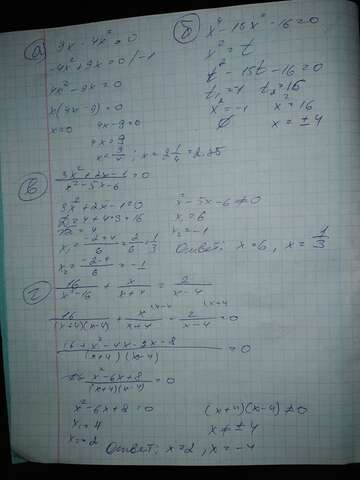 а) 9x - 4x² = 0
-4x² + 9x = 0 /-1
4x² - 9x = 0
x(4x - 9) = 0
x = 0    4x - 9 = 0
4x = 9
x = 9/4 ; x = 2 1/4 = 2.25
б) x⁴ - 15x² - 16 = 0
x² = t
t² - 15t - 16 = 0
t₁ = -1    t₂ = 16
x² = -1    x² = 16
∅    x = ±4
в) (3x² + 2x - 1)/(x² - 5x - 6) = 0
3x² + 2x - 1 = 0    x² - 5x - 6 ≠ 0
D = 4 + 4·3 = 16    x₁ = 6
= 4    x₂ = -1
x₁ = (-2 + 4)/6 = 2/6 = 1/3
x₂ = (-2 - 4)/6 = -1
Ответ: x = 6, x = 1/3
г) 16/(x² - 16) + x/(x + 4) = 2/(x - 4)
16/((x + 4)(x - 4)) + x/(x + 4) - 2/(x - 4) = 0
(16 + x² - 4x - 2x - 8)/((x + 4)(x - 4)) = 0
(x² - 6x + 8)/((x + 4)(x - 4)) = 0
x² - 6x + 8 = 0    (x + 4)(x - 4) ≠ 0
x₁ = 4    x ≠ ±4
x₂ = 2
Ответ: x = 2, x = -4